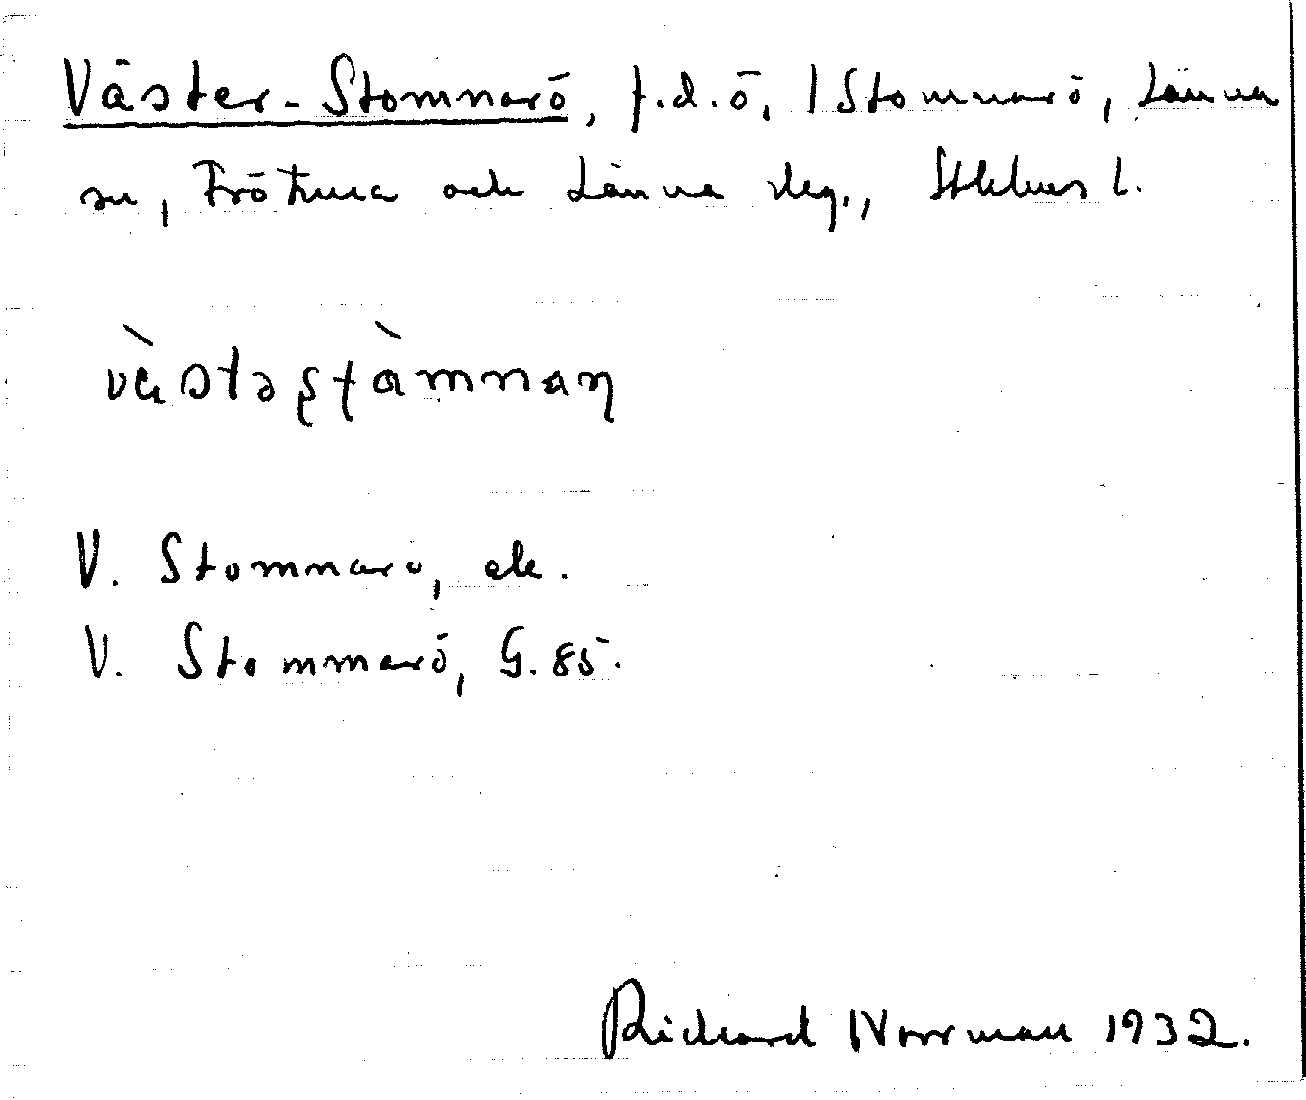 Väster-Stomnarö, f.d. ö, / Stomnarö, Länna
sn, Frötuna och Länna slg., Sthlms l.
vä̀stəʂʈàmnaɳ
V. Stomnarö, ek.
V. Stommarö, G. 85.
Richard Norrman 1932.